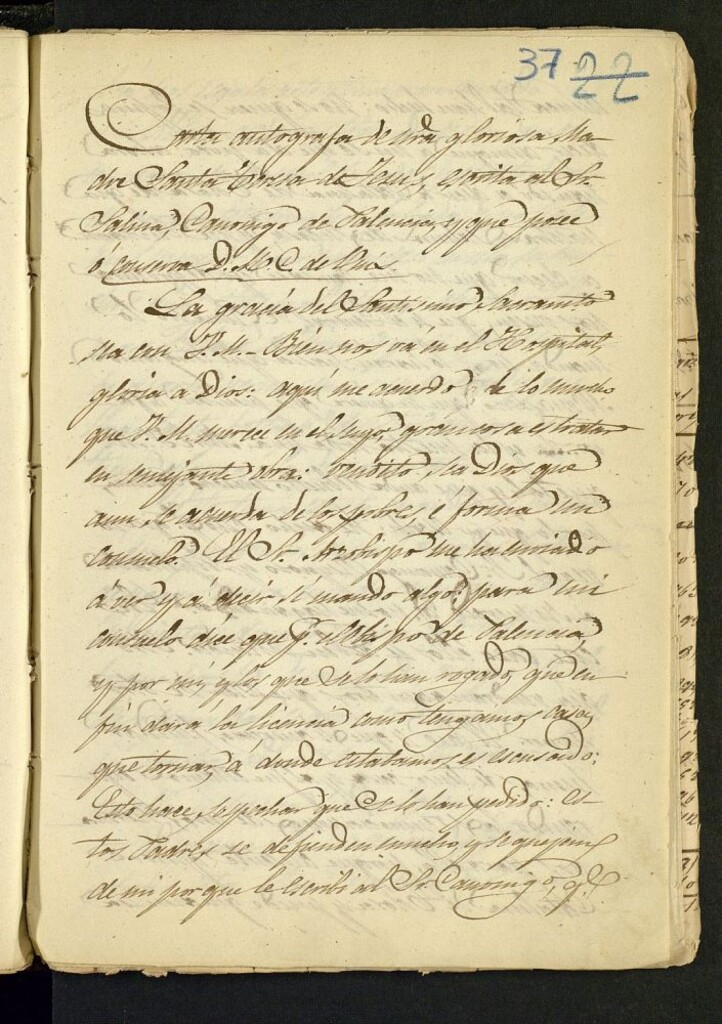 37 22
Carta autografa de nrâ gloriosa Ma
dre Santa Teresa de Jesus, escrita al Sr.
Salina, Canonigo de Palencia, y que posee
ó conserva D. M. C. de
La gracia del Santisimo Sacramto
sea con V. M. – Bien nos vá en el Hospital,
gloria á Dios: aqui me acuerdo de lo mucho
que V. M. merece en el suyo, gran cosa es tratar
en semejante obra: vendito sea Dios que
aun se acuerda de los pobres, é forma un
consuelo. El Sr. Arzobispo me ha enviado
á ver y á decir si mando algo: para mi
consuelo dice que pr. el Obispo de Palencia,
y por mi, y los que se lo han rogado, que en
fin dará la licencia como tengamos casa,
que tornar á donde estabamos es escusado:
Esto hace sospechar que se lo han pedido: es-
tos Padres se defienden mucho, y se quejan
de mi por que le escribi al Sr. Canonigo, qe.